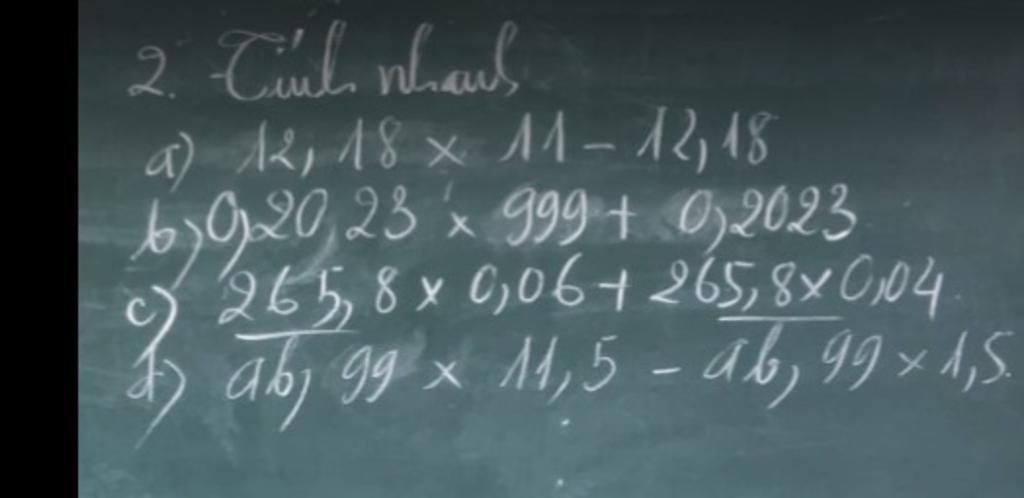 2. Tính nhanh
a) 12,18 x 11 - 12,18
b) 0,2023 x 999 + 0,2023
c) 265,8 x 0,06 + 265,8 x 0,04.
d) ab, 99 x 11,5 - ab, 99 x 1,5.